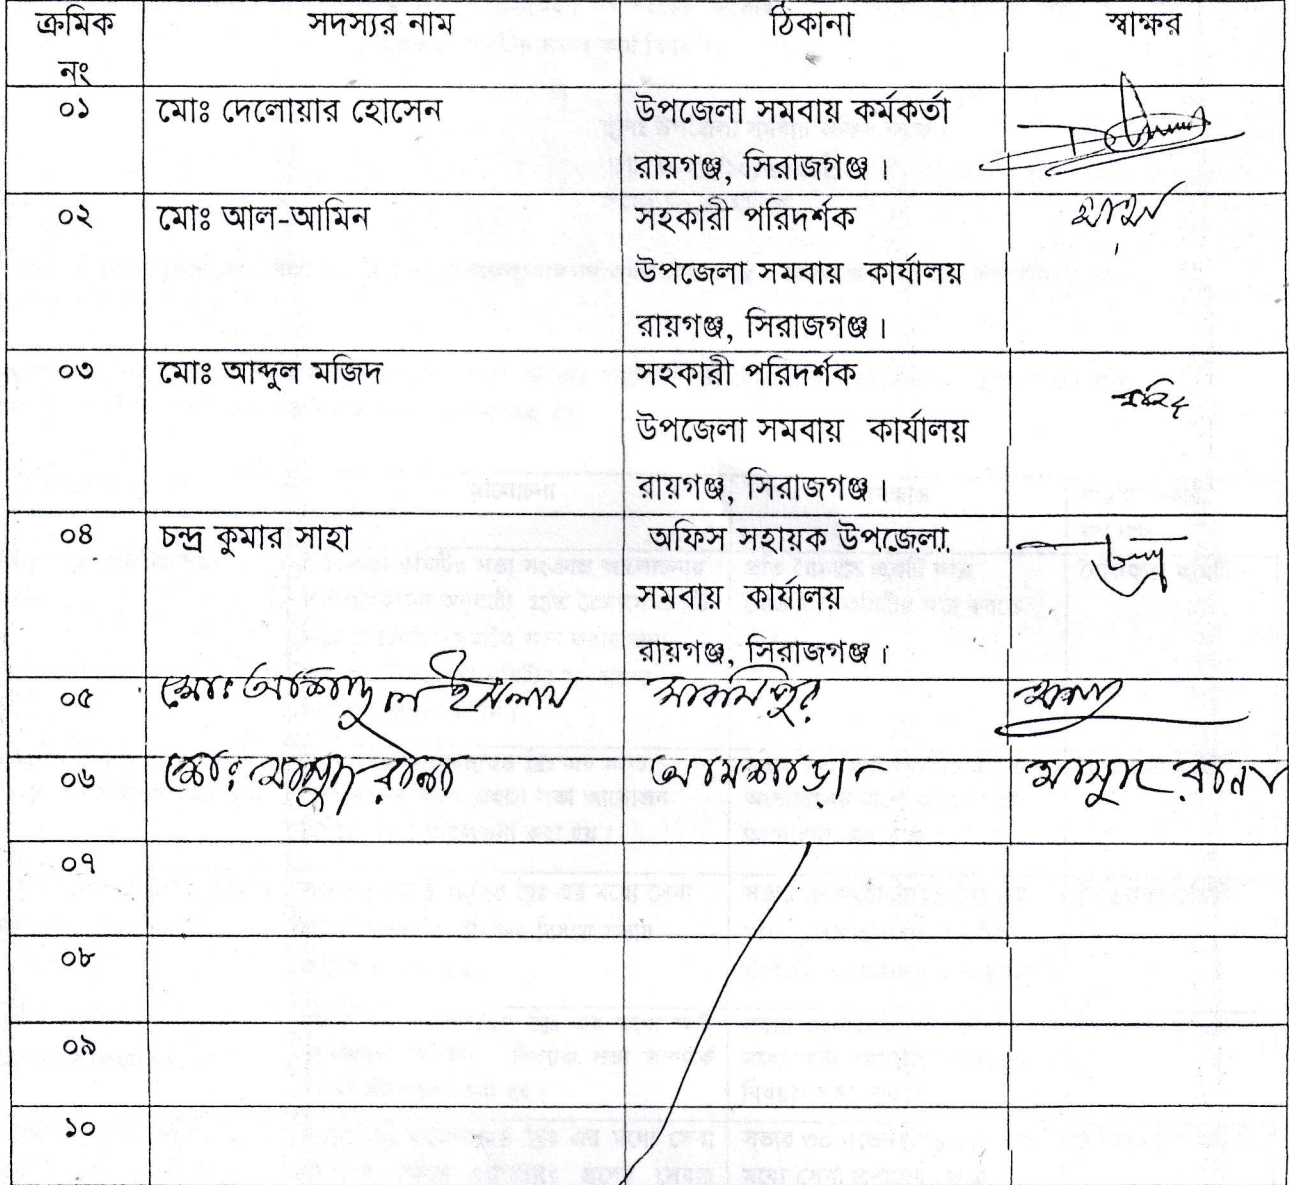 ক্রমিক নং সদস্যর নাম ঠিকানা স্বাক্ষর
০১ মোঃ দেলোয়ার হোসেন উপজেলা সমবায় কর্মকর্তা
রায়গঞ্জ, সিরাজগঞ্জ।
০২ মোঃ আল-আমিন সহকারী পরিদর্শক
উপজেলা সমবায় কার্যালয়
রায়গঞ্জ, সিরাজগঞ্জ।
০৩ মোঃ আব্দুল মজিদ সহকারী পরিদর্শক
উপজেলা সমবায় কার্যালয়
রায়গঞ্জ, সিরাজগঞ্জ।
০৪ চন্দ্র কুমার সাহা অফিস সহায়ক উপজেলা
সমবায় কার্যালয়
রায়গঞ্জ, সিরাজগঞ্জ।
০৫ মোঃ ইসলাম
০৬ মোঃ মাসুদ রানা আমশাড়া মাসুদ রানা
০৭
০৮
০৯
১০